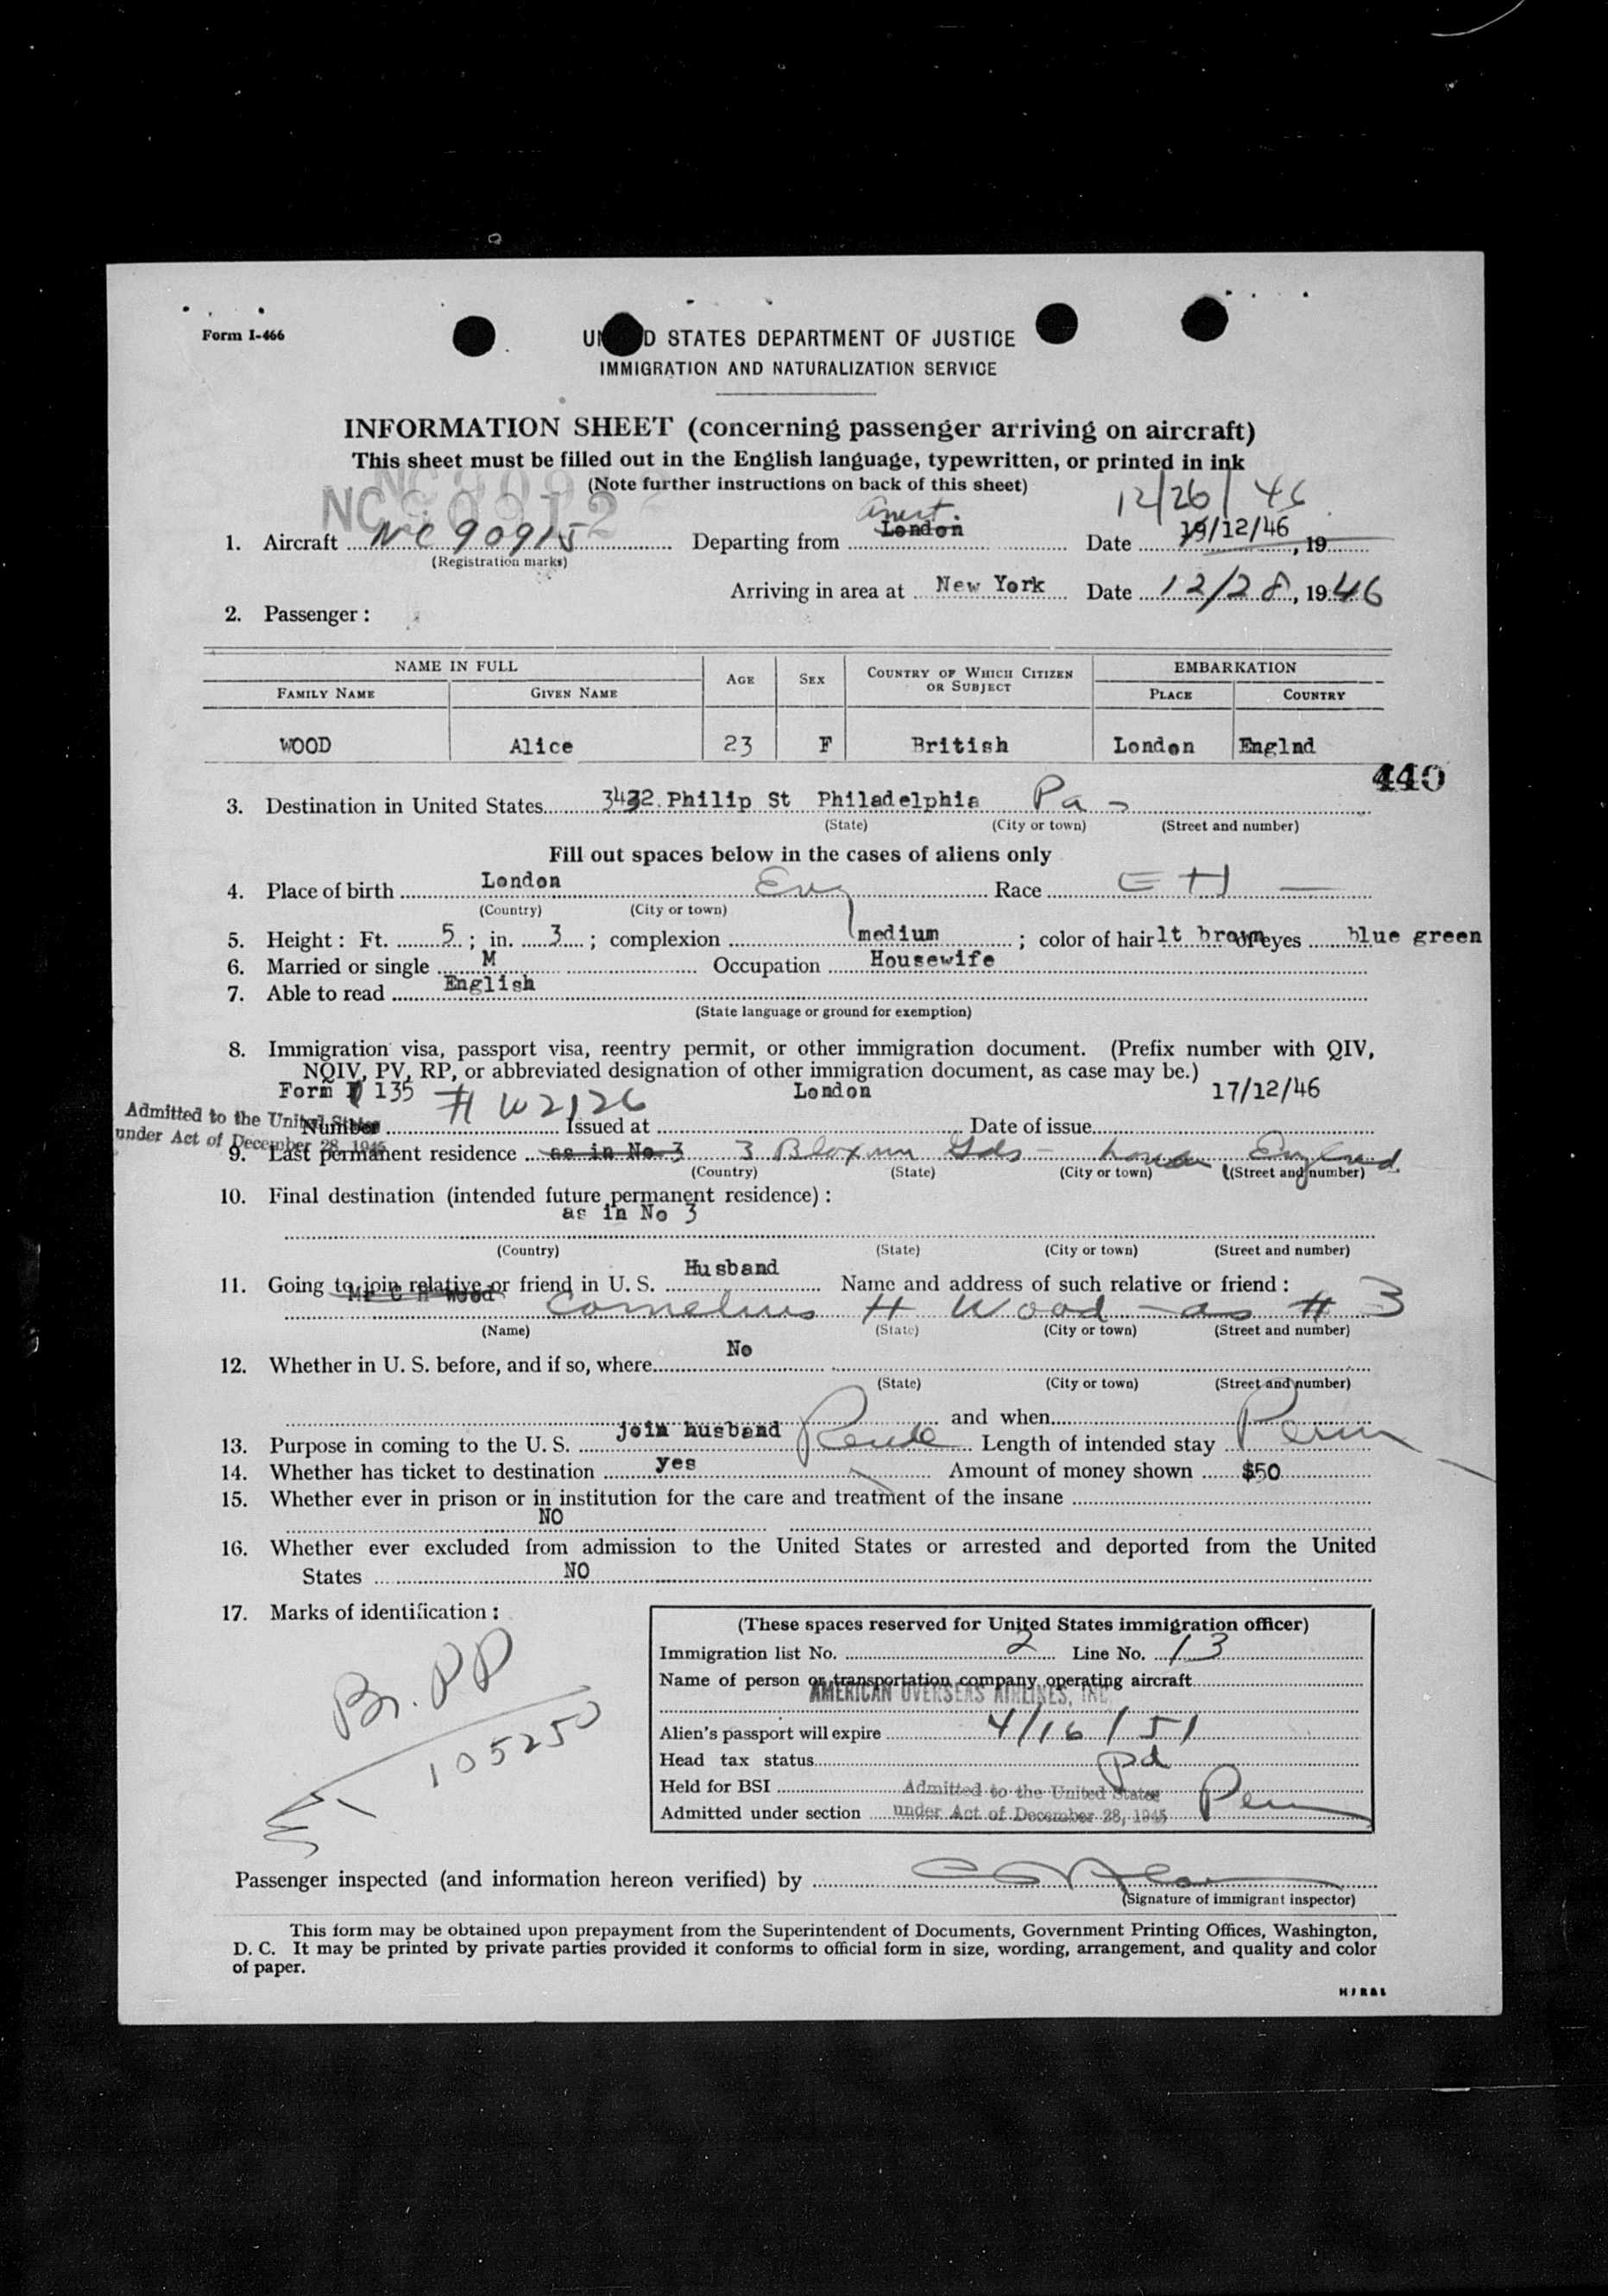 Form I-466
UNITED STATES DEPARTMENT OF JUSTICE
IMMIGRATION AND NATURALIZATION SERVICE
INFORMATION SHEET (concerning passenger arriving on aircraft)
This sheet must be filled out in the English language, typewritten, or printed in ink
(Note further instructions on back of this sheet)
NC90912
12/26/46
1. Aircraft NC 90915 Departing from London Date 19/12/46, 19
(Registration marks)
Arriving in area at New York Date 12/28, 1946
2. Passenger:
NAME IN FULL AGE SEX COUNTRY OF WHICH CITIZEN OR SUBJECT EMBARKATION
FAMILY NAME GIVEN NAME PLACE COUNTRY
WOOD Alice 23 F British London Englnd
440
3. Destination in United States 3432 Philip St Philadelphia Pa
(State) (City or town) (Street and number)
Fill out spaces below in the cases of aliens only
4. Place of birth London Eng Race
(Country) (City or town)
5. Height: Ft. 5; in. 3; complexion medium; color of hair lt brown of eyes blue green
6. Married or single M Occupation Housewife
7. Able to read English
(State language or ground for exemption)
8. Immigration visa, passport visa, reentry permit, or other immigration document. (Prefix number with QIV,
NQIV, PV, RP, or abbreviated designation of other immigration document, as case may be.)
Form 135 # W2126 London 17/12/46
Number Issued at Date of issue
Admitted to the United States
under Act of December 28, 1945
9. Last permanent residence as in No 3 3 Gds - London England
(Country) (State) (City or town) (Street and number)
10. Final destination (intended future permanent residence):
as in No 3
(Country) (State) (City or town) (Street and number)
11. Going to join relative or friend in U. S. Husband Name and address of such relative or friend:
Mr C H Wood Cornelius H Wood - as # 3
(Name) (State) (City or town) (Street and number)
12. Whether in U. S. before, and if so, where No
(State) (City or town) (Street and number)
and when
13. Purpose in coming to the U. S. join husband Reside Length of intended stay Perm
14. Whether has ticket to destination yes Amount of money shown $50
15. Whether ever in prison or in institution for the care and treatment of the insane
NO
16. Whether ever excluded from admission to the United States or arrested and deported from the United
States NO
17. Marks of identification:
Br. PP
105250
(These spaces reserved for United States immigration officer)
Immigration list No. 2 Line No. 13
Name of person or transportation company operating aircraft
AMERICAN OVERSEAS AIRLINES, INC
Alien's passport will expire 4/16/51
Head tax status pd
Held for BSI
Admitted to the United States
Admitted under section under Act of December 28, 1945 Perm
Passenger inspected (and information hereon verified) by
(Signature of immigrant inspector)
This form may be obtained upon prepayment from the Superintendent of Documents, Government Printing Offices, Washington,
D. C. It may be printed by private parties provided it conforms to official form in size, wording, arrangement, and quality and color
of paper.